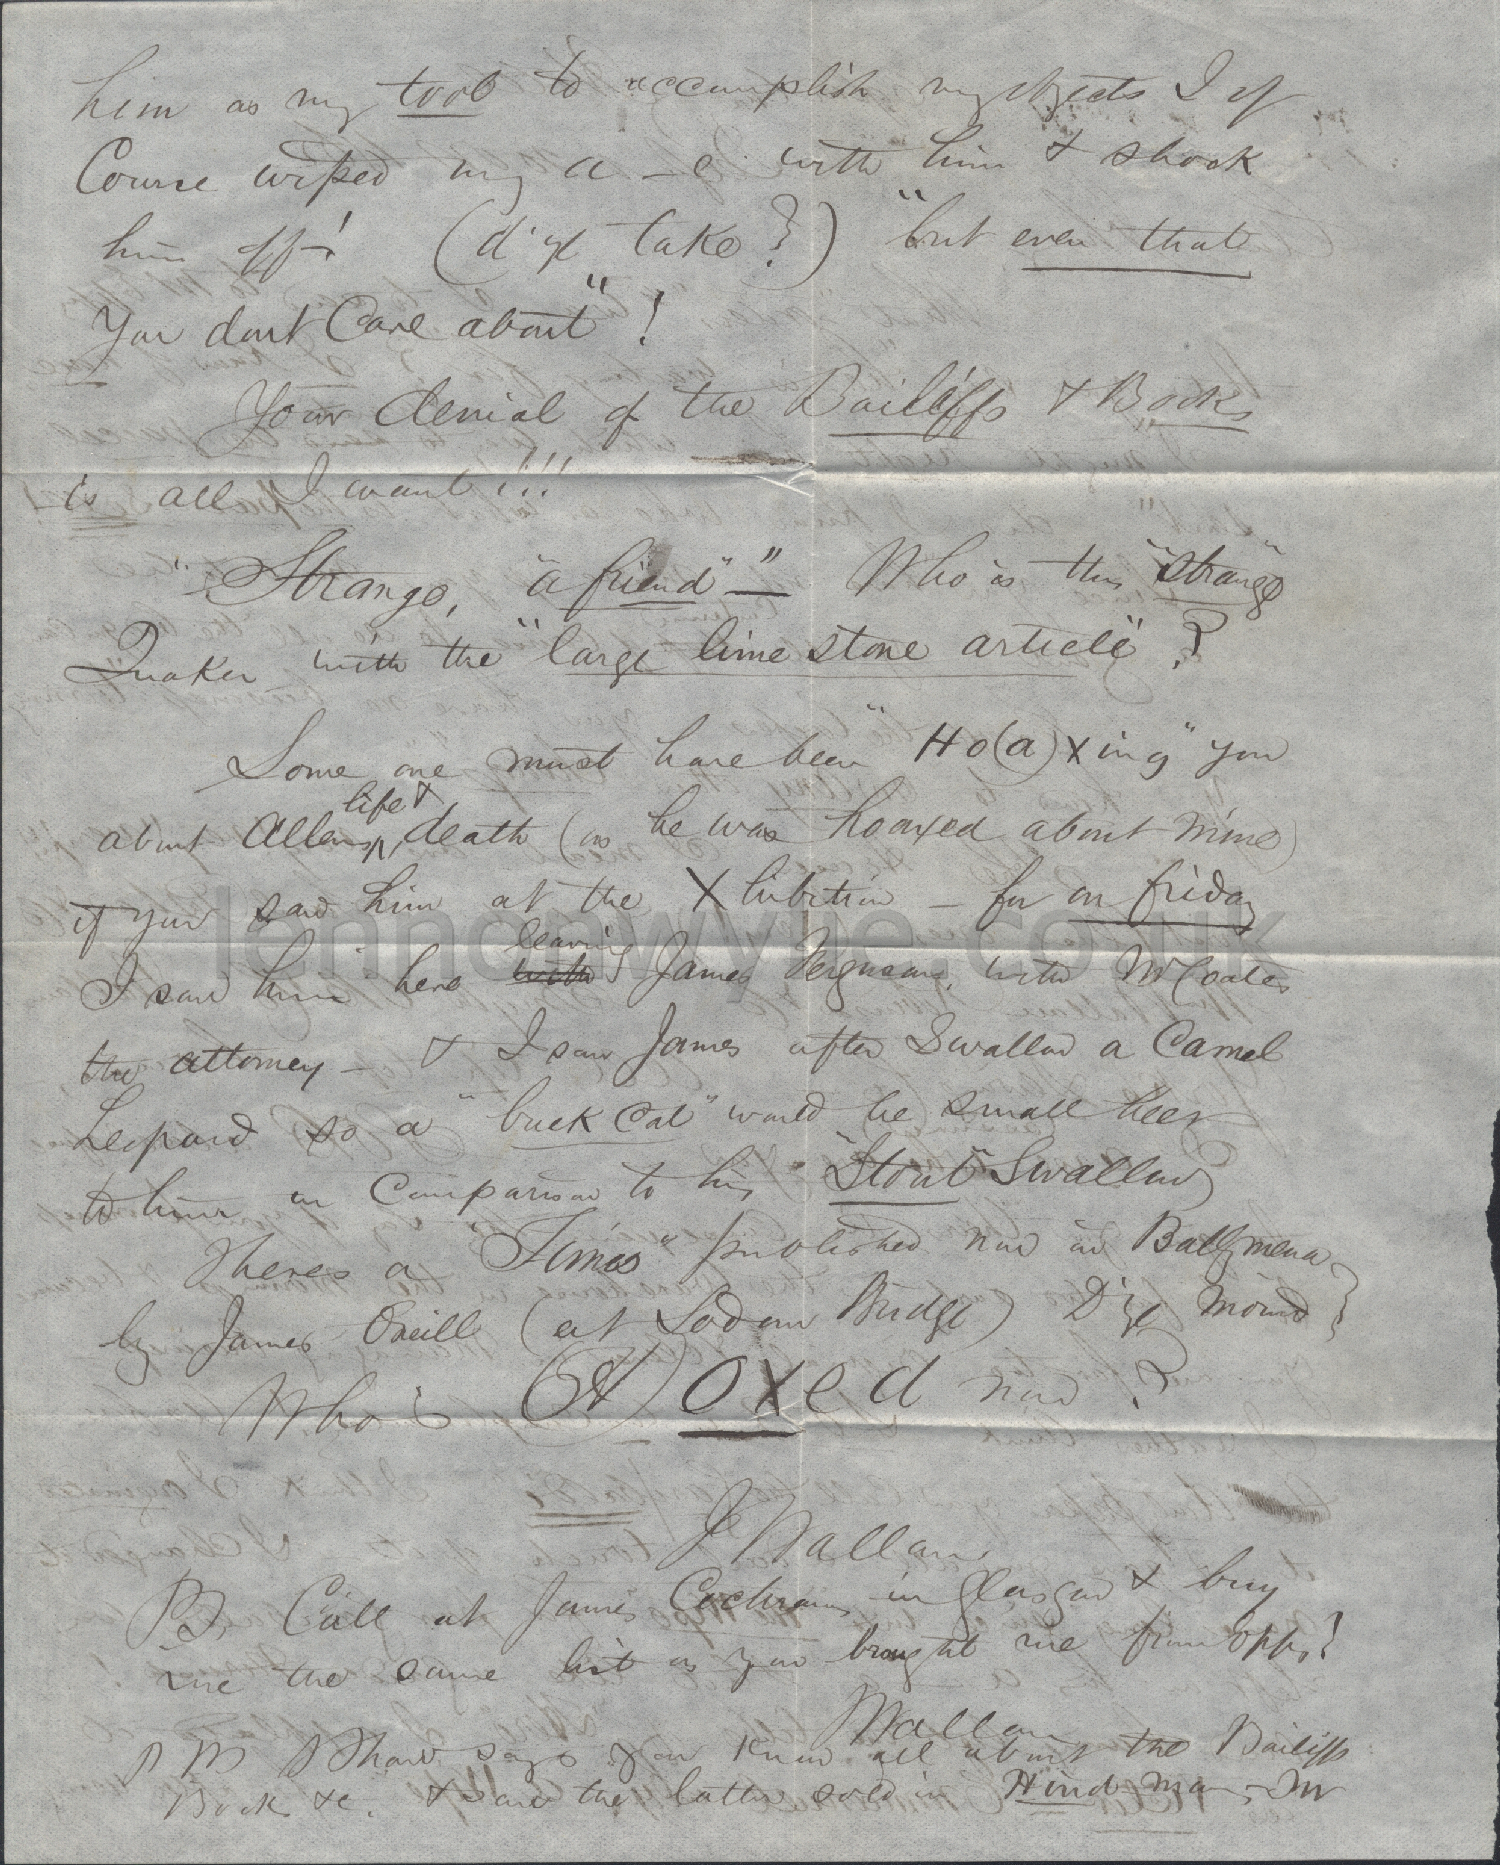 him as my tool to accomplish my objects I of
Course wiped my a–e with him & shook
him off! (d'ye take?) "but even that
You dont Care about"!
Your denial of the Bailiffs & Books
is all I want!!!
"Strange, "a friend" –" Who is this "strange"
Quaker with the "large lime stone article"?
Some one must have been "Ho(a)xing" you
life &
about Allens, death (as he was hoaxed about mine)
if you saw him at the Xhibition – for on friday
leaving
I saw him here with James Fergusons, with Mr Coates
the attorney – & I saw James after Swallow a Camel
Leopard so a "buck Cat" would be small beer
to him in Comparison to his "Stout" Swallow
Theres a "Times" published now in Ballymena
by James Oneill (at Sodom Bridge) D'ye Mind
Who is (H)oxed now?
J Wallan
PS, Call at James Cochrans in Glasgow & buy
me the same list as you brought me from opps!
Wallan
Shaw says you know all about the Bailiffs
Book &c. & saw the latter sold in Hind
lennonwylie.co.uk